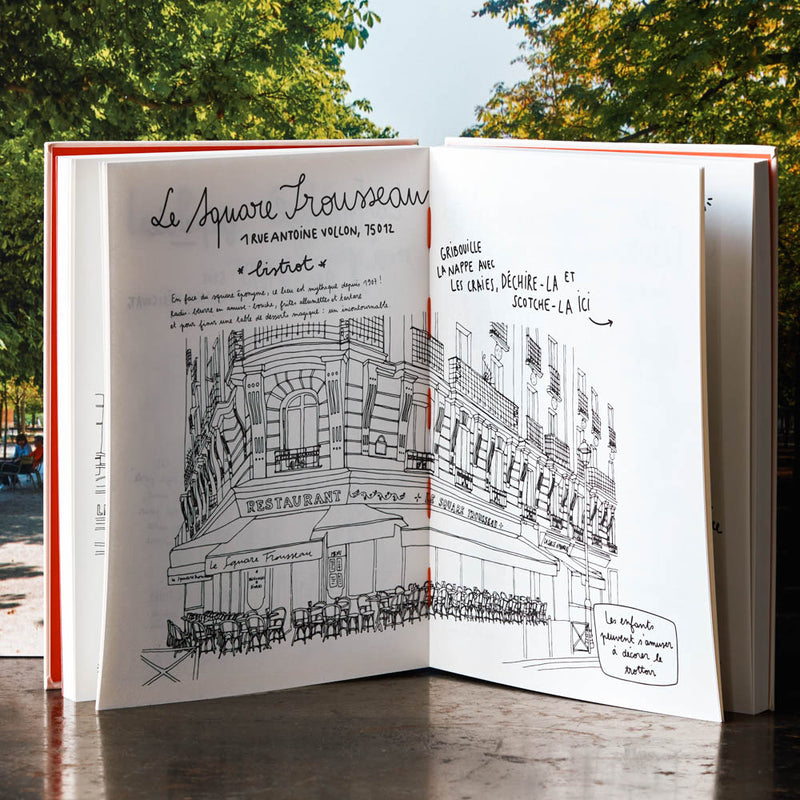 Le Square Trousseau
1 RUE ANTOINE VOLLON, 75012
* bistrot *
En face du square éponyme, ce lieu est mythique depuis 1907 !
Radis-beurre en amuse-bouche, frites allumettes et tartare
et pour finir une table de desserts magique : un incontournable
GRIBOUILLE
LA NAPPE AVEC
LES CRAIES, DÉCHIRE-LA ET
SCOTCHE-LA ICI
RESTAURANT
LE SQUARE TROUSSEAU
Le Square Trousseau
Les enfants
peuvent s'amuser
à décorer le
trottoir